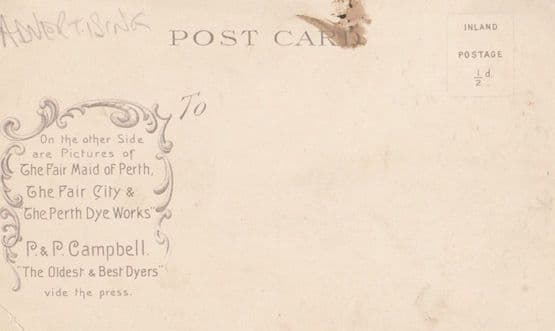 ADVERTISING
POST CARD
INLAND
POSTAGE
½ d.
To
On the other Side
are Pictures of
The Fair Maid of Perth,
The Fair City &
"The Perth Dye Works"
P. & P. Campbell.
"The Oldest & Best Dyers"
vide the press.